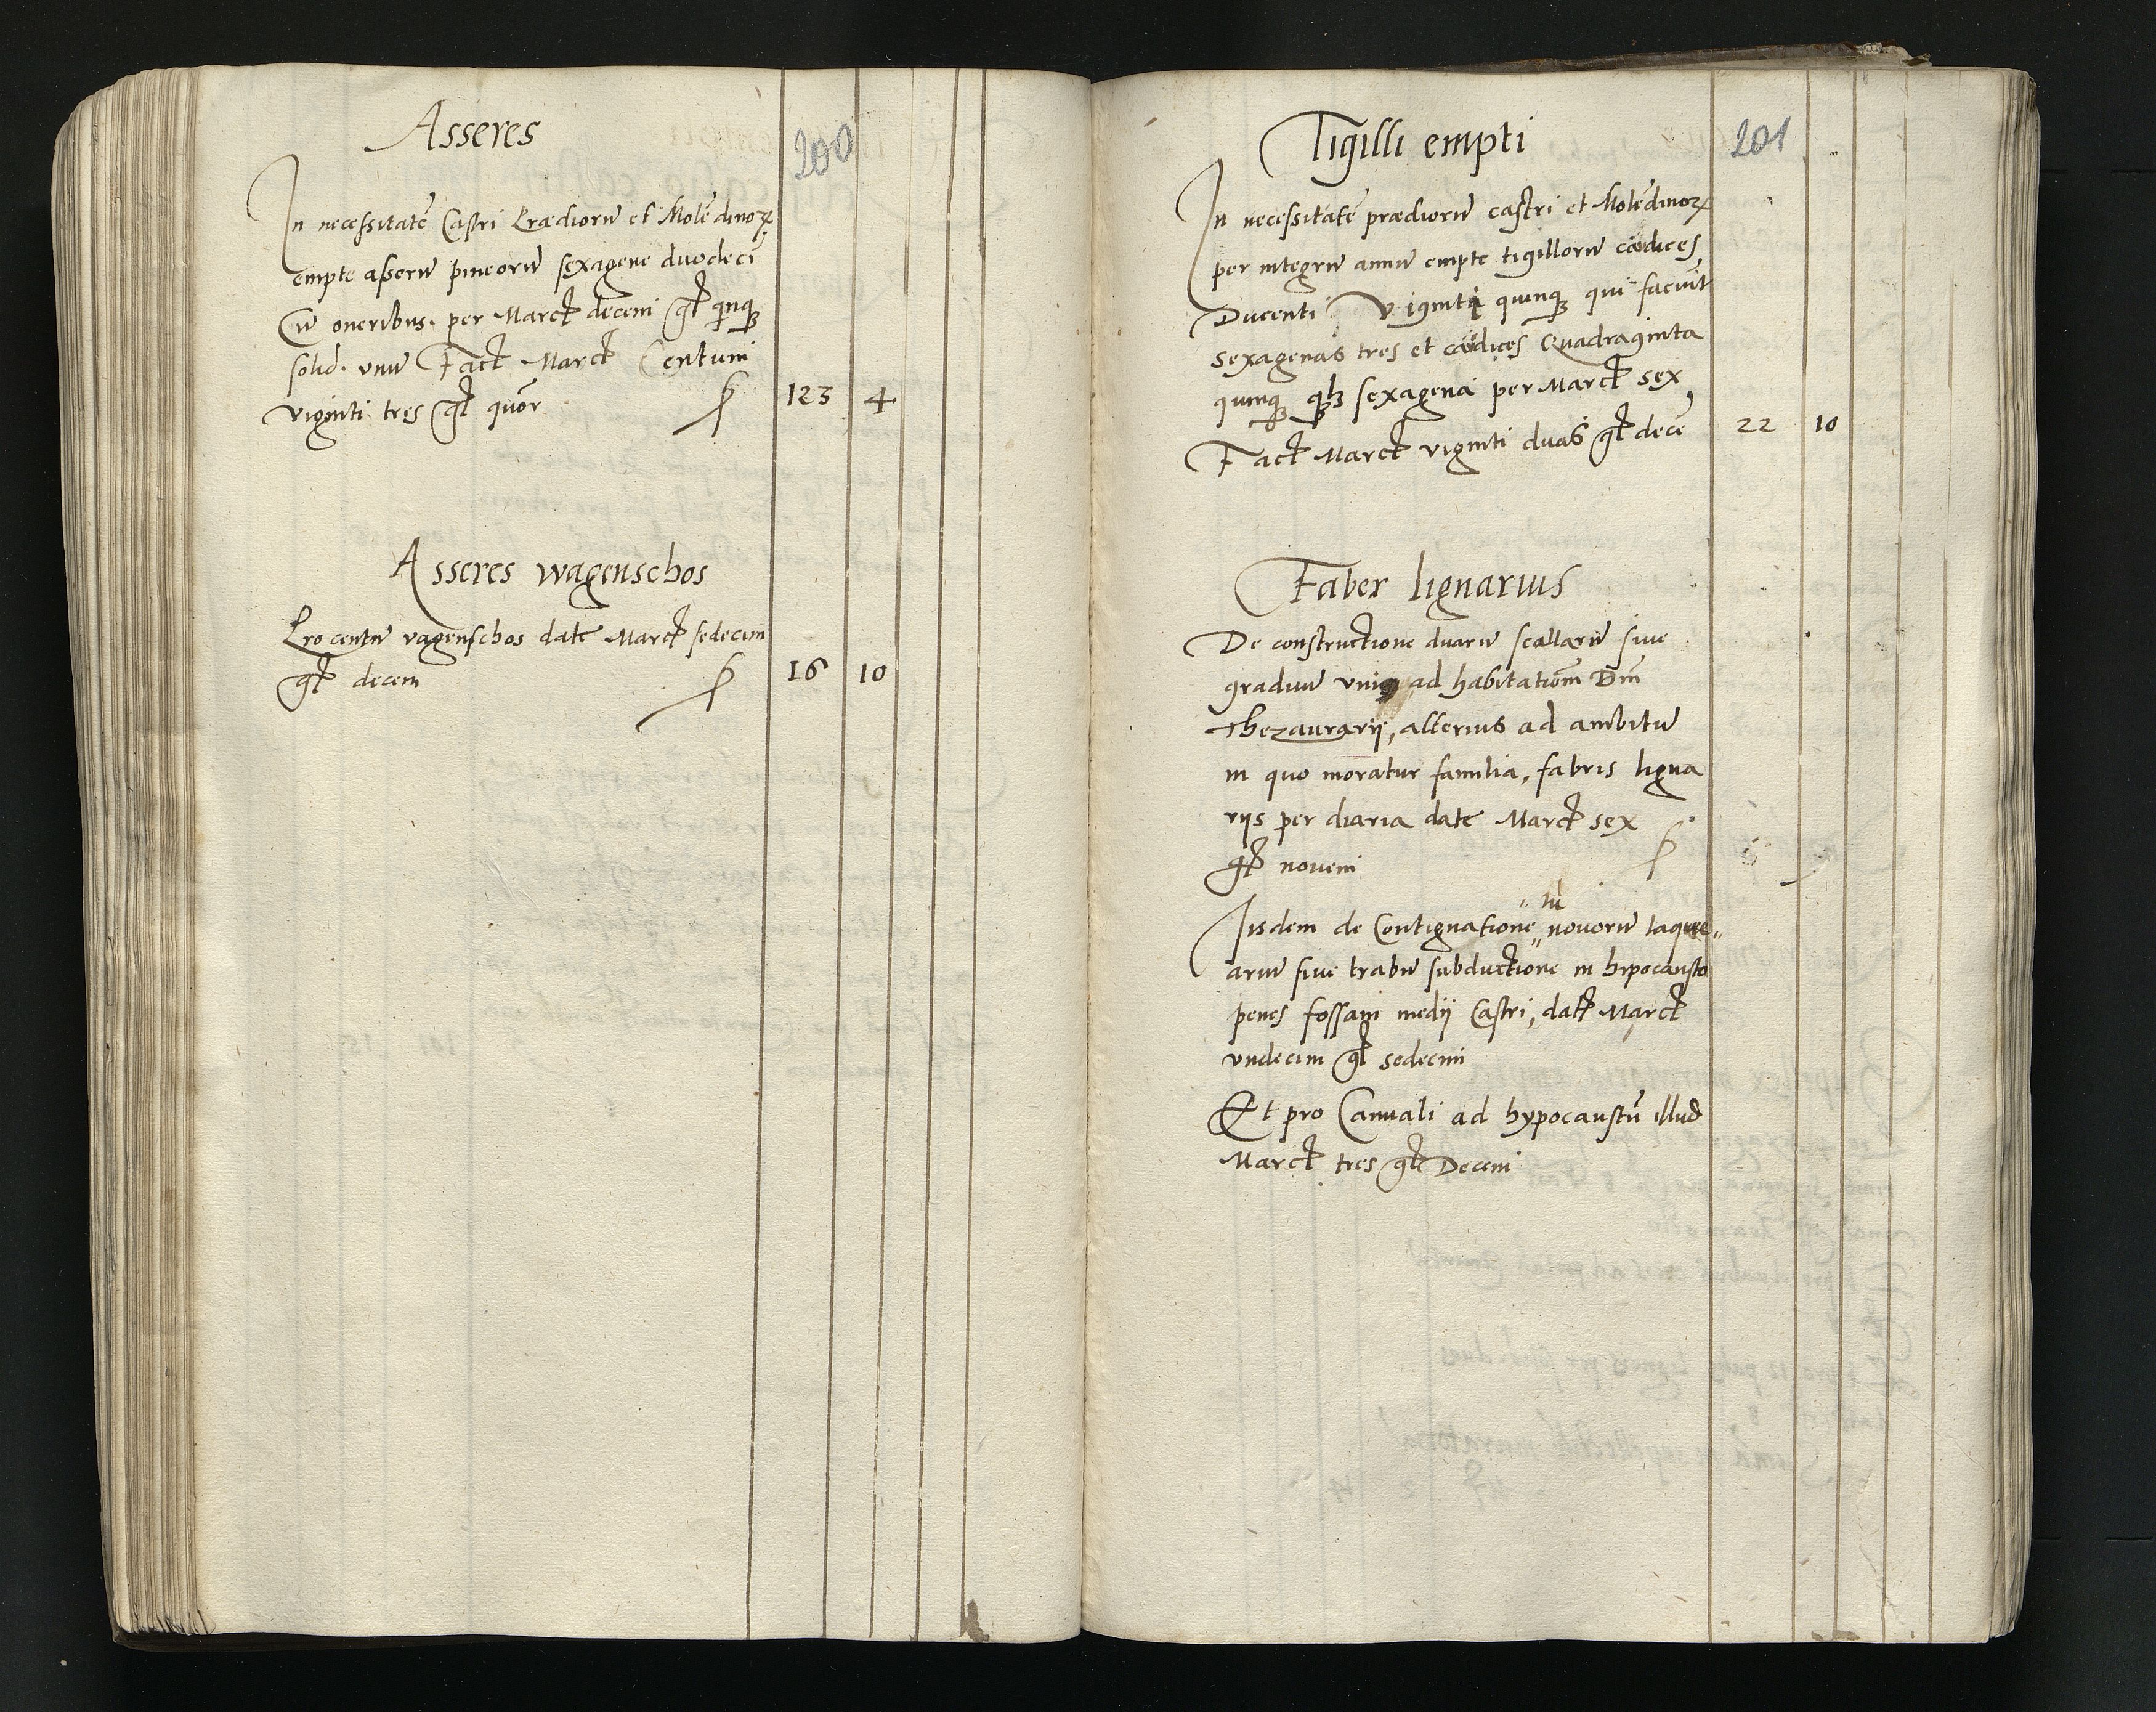 Asseres
200
In necessitatē Castri Prædiorū et Molēdinoꝝ
empte asserū pineorū sexagene duodecī
Cū oneribus. per Marcꝭ decem gꝭ qīnqꝫ
solid. vnū Facꝭ Marcꝭ Centum
viginti tres gꝭ quōr 123 4
Asseres wagenschos
Pro centū vagenschos date Marcꝭ sedecim
gꝭ decem 16 10
Tigilli empti
201
In necessitatē prædiorū castri et Molēdinoꝝ
per integrū annū empte tigillorū caudices
Ducenti Viginti quinqꝫ qui faciūt
sexagenas tres et caudices Quadraginta
quinqꝫ qlꝫ sexagena per Marcꝭ sex,
Facꝭ Marcꝭ viginti duas gꝭ decē 22 10
Faber lignarius
De constructione duarū scallarū siue
graduū vniꝰ ad habitatiom̄ Dm̄
Thezaurarij, alterius ad ambitū
in quo moratur familia, fabris ligna
rijs per diaria date Marcꝭ sex
gꝭ novem 6 9
tū
Iisdem de Contignatione novorū laque
arū siue trabū subductione in hipocausto
penes fossam medij Castri, datꝭ Marcꝭ
vndecim gꝭ sedecim
Et pro Cannali ad hypocaustū illud
Marcꝭ tres gꝭ Decem